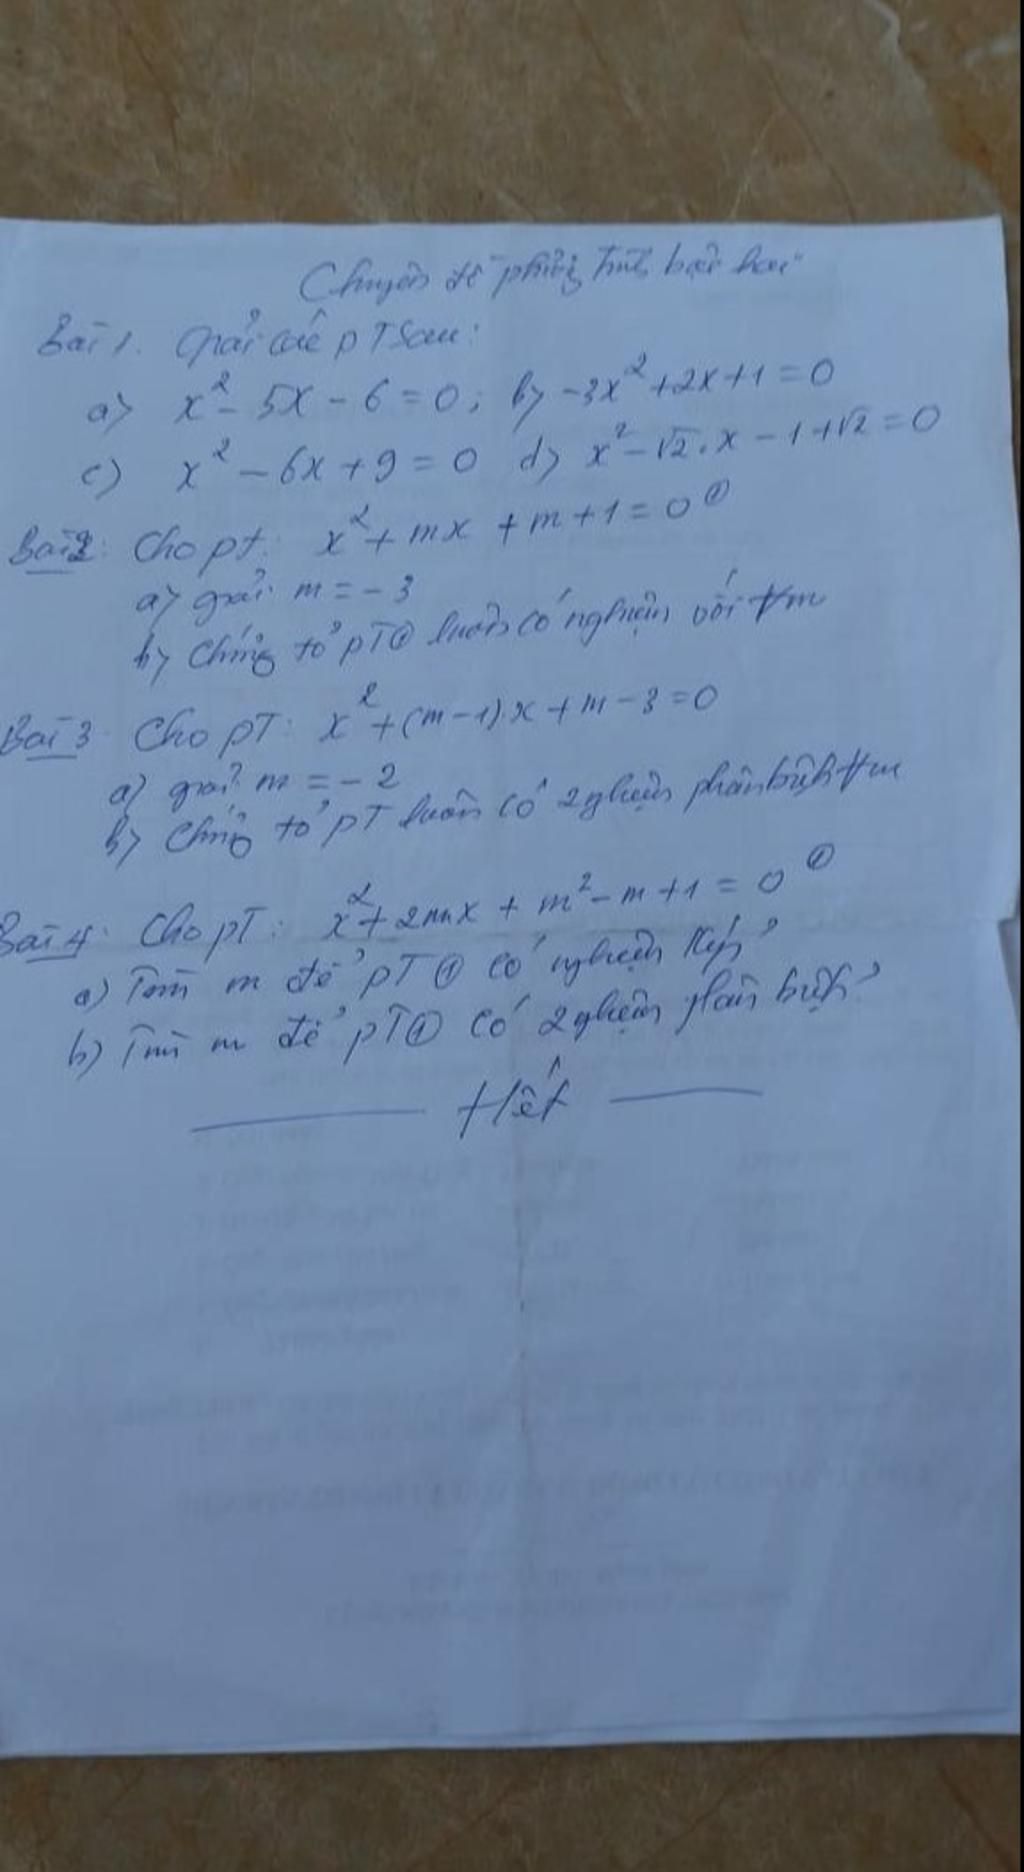 Chuyên đề phương trình bậc hai
Bài 1. Giải các pT sau:
a) x² - 5x - 6 = 0; b) -3x² + 2x + 1 = 0
c) x² - 6x + 9 = 0 d) x² - √2.x - 1 + √2 = 0
Bài 2: Cho pt: x² + mx + m + 1 = 0 ①
a) giải m = -3
b) Chứng tỏ pT① luôn có nghiệm với ∀m
Bài 3 Cho pT: x² + (m-1).x + m - 3 = 0
a) giải m = -2
b) Chứng tỏ pT luôn có 2 nghiệm phân biệt ∀m
Bài 4: Cho pT: x² + 2mx + m² - m + 1 = 0 ①
a) Tìm m để pT① có nghiệm kép?
b) Tìm m để pT① có 2 nghiệm phân biệt?
Hết